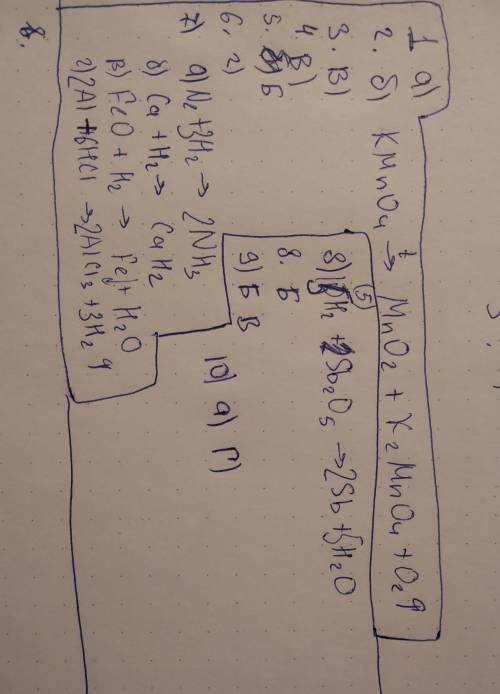 1 а)
2. б) KMnO4 t→ MnO2 + K2MnO4 + O2↑
3. В)
4. В)
5. Б
6. г)
7) а) N2 + 3H2 → 2NH3
б) Ca + H2 → CaH2
в) FeO + H2 → Fe + H2O
г) 2Al + 6HCl → 2AlCl3 + 3H2↑
8) 5H2 + Sb2O5 → 2Sb + 5H2O
8. Б
9) Б В
10) а) Г)
8.